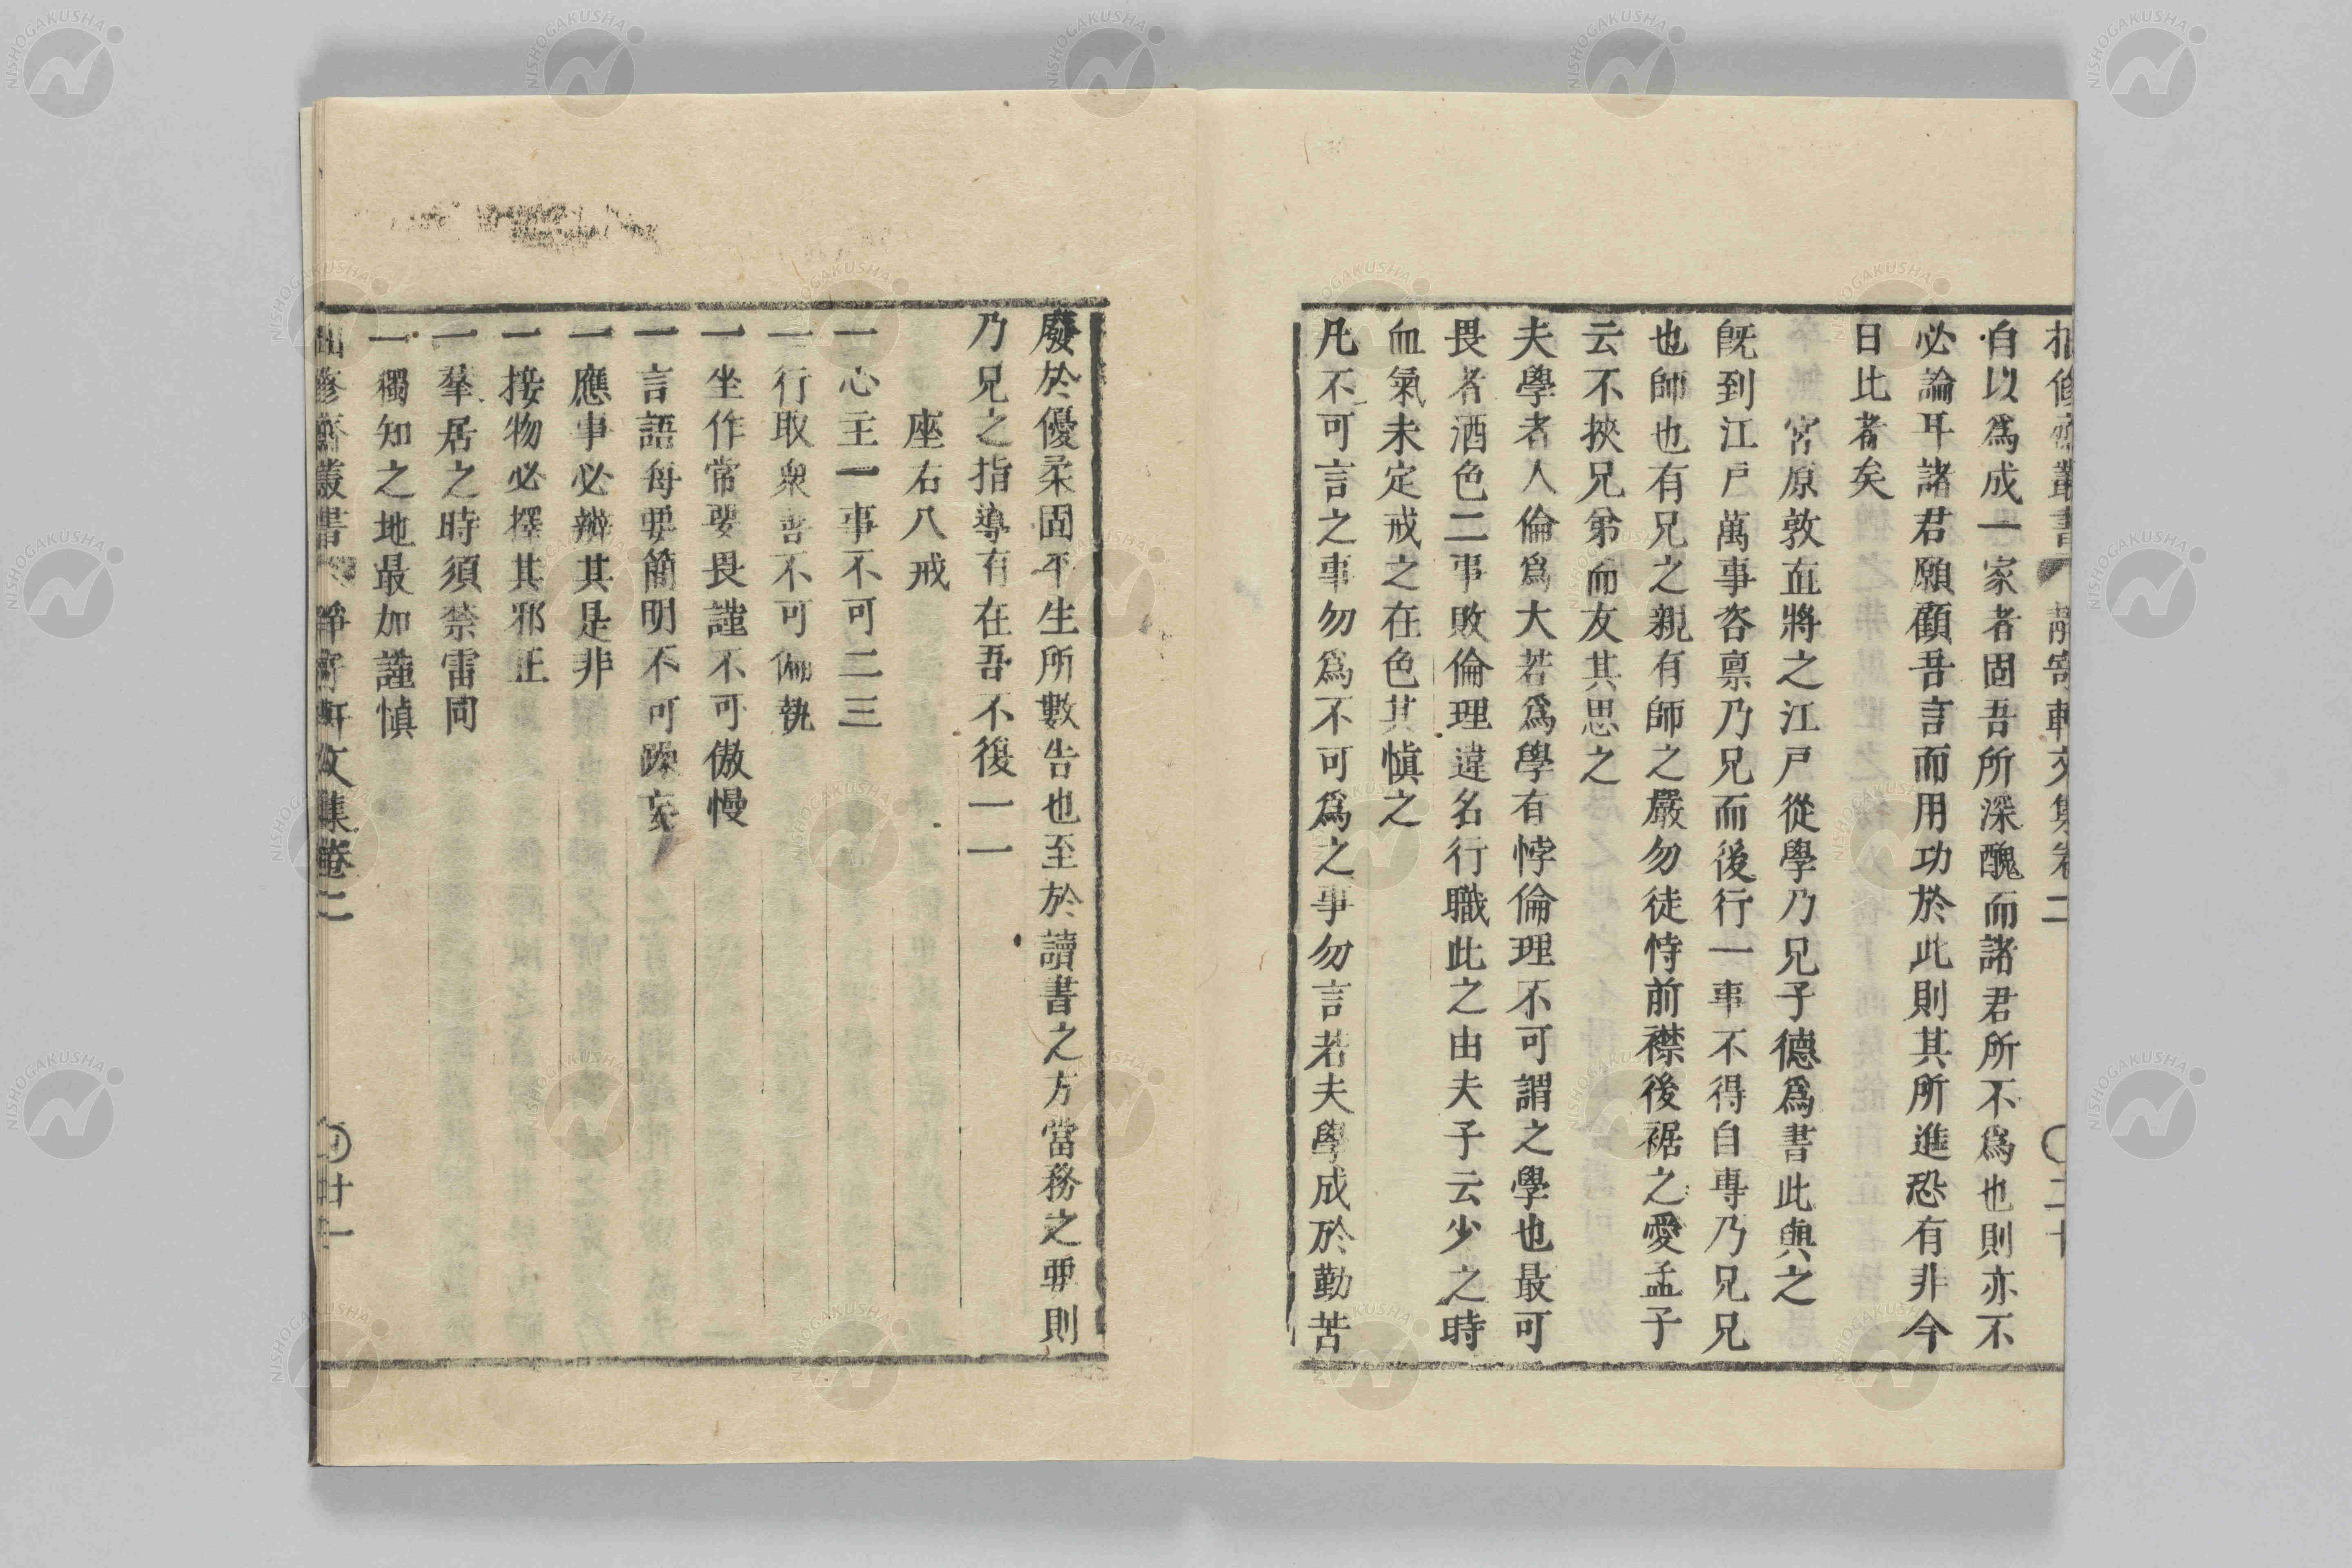 拙修齋叢書 靜寄軒文集卷二 〇二十
自以爲成一家者固吾所深醜而諸君所不爲也則亦不
必論耳諸君願顧吾言而用功於此則其所進恐有非今
日比者矣
宮原敦直將之江戸從學乃兄子德爲書此與之
既到江戸萬事咨稟乃兄而後行一事不得自專乃兄兄
也師也有兄之親有師之嚴勿徒恃前襟後裾之愛孟子
云不挾兄弟而友其思之
夫學者人倫爲大若爲學有悖倫理不可謂之學也最可
畏者酒色二事敗倫理違名行職此之由夫子云少之時
血氣未定戒之在色其愼之
凡不可言之事勿爲不可爲之事勿言若夫學成於勤苦
廢於優柔固平生所數告也至於讀書之方當務之要則
乃兄之指導有在吾不復一一
座右八戒
一心主一事不可二三
一行取衆善不可偏執
一坐作常要畏謹不可傲慢
一言語每要簡明不可躁妄
一應事必辨其是非
一接物必擇其邪正
一羣居之時須禁雷同
一獨知之地最加謹愼
拙修齋叢書 靜寄軒文集卷二 廿一
NISHOGAKUSHA